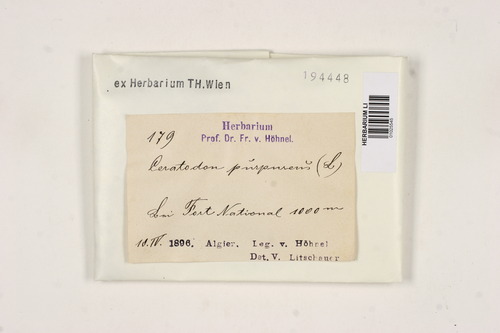 ex Herbarium TH.Wien
194448
HERBARIUM LI
Herbarium
Prof. Dr. Fr. v. Höhnel.
179
Ceratodon purpureus (L)
bei Fort National 1000 m
10. IV. 1896. Algier. Leg. v. Höhnel
Det. V. Litschauer